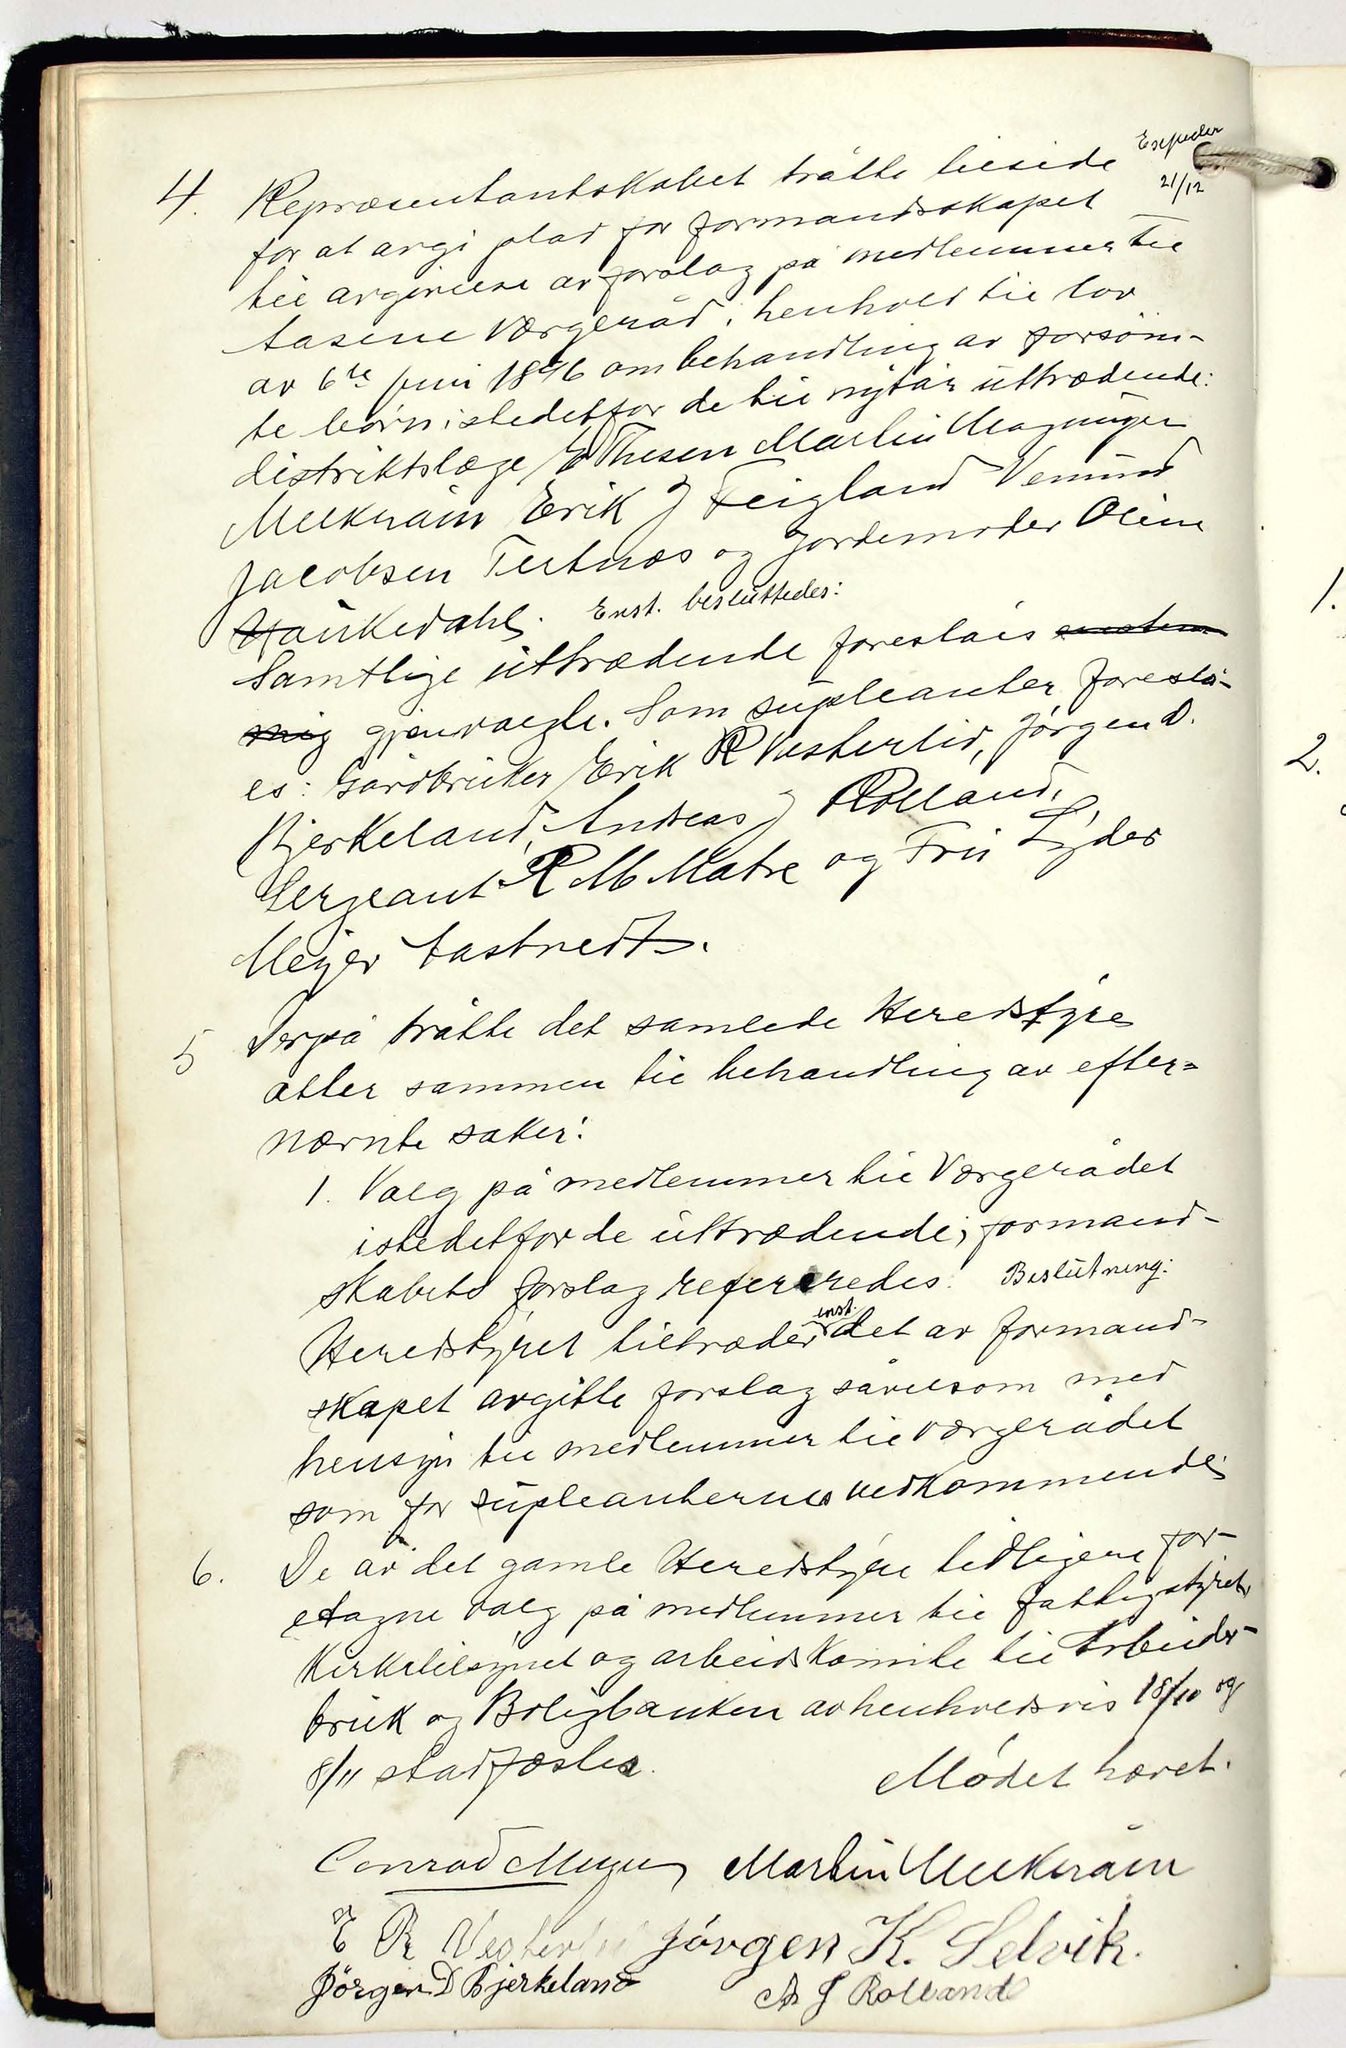 Expeder
21/12
4. Repræsentantskabet tråtte tilside
for at avgi plas for formandsskapet
til avgivelse av forslag på medlemmer til
Aasene Værgeråd i henhold til lov
av 6te Juni 1896 om behandling av forsøm-
te børn istedetfor de til nytår uttrædende:
distriktslæge E Thesen Martin Magnusen
Mulknain Erik J Teigland Vemund
Jacobsen Tertnæs og Jordemoder Oline
Haukedahl. Enst. besluttedes:
Samtlige uttrædende foreslåis enstem
mig gjenvalgte. Som supleanter foreslå-
es: Gårdbruker Erik R Vesterlid, Jørgen D.
Bjerkeland, Andreas J Rolland,
Sergeant R M Matre og Fru Lyder
Meyer Aastvedt.
5 Derpå tråtte det samlede Heredstyre
atter sammen til behandling av efter=
nævnte saker:
1. Valg på medlemmer til Værgerådet
istedetfor de uttrædende; formand-
skabets forslag refereredes. Beslutning:
Heredstyret tiltræder enst. det av formand-
skapet avgitte forslag såvelsom med
hensyn til medlemmer til værgerådet
som for supleanternes vedkommende.
6. De av det gamle Heredstyre tidligere for-
etagne valg på medlemmer til fattigstyret,
Kirketilsynet og arbeidskomite til Arbeider-
bruk og Boligbanken av henholdsvis 18/10 og
8/11 stadfæstes.
Mødet hævet.
Conrad Meyer Martin Mulknain
E R Vesterlid Jørgen K. Selvik.
Jörgen D Bjerkeland A J Rolland
1.
2.